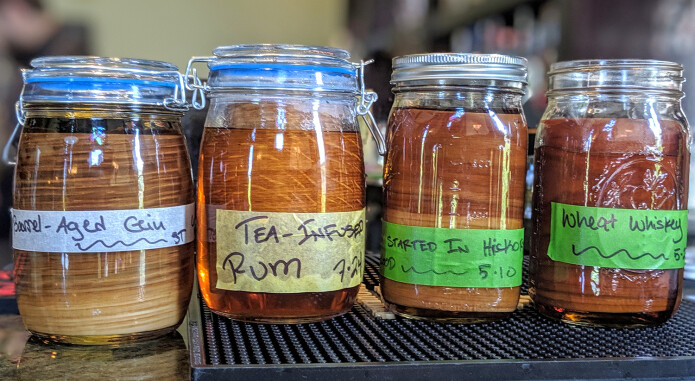 Barrel-Aged Gin
ST
TEA-INFUSED
RUM 7.24
STARTED IN HICKORY
5-10
Wheat Whiskey